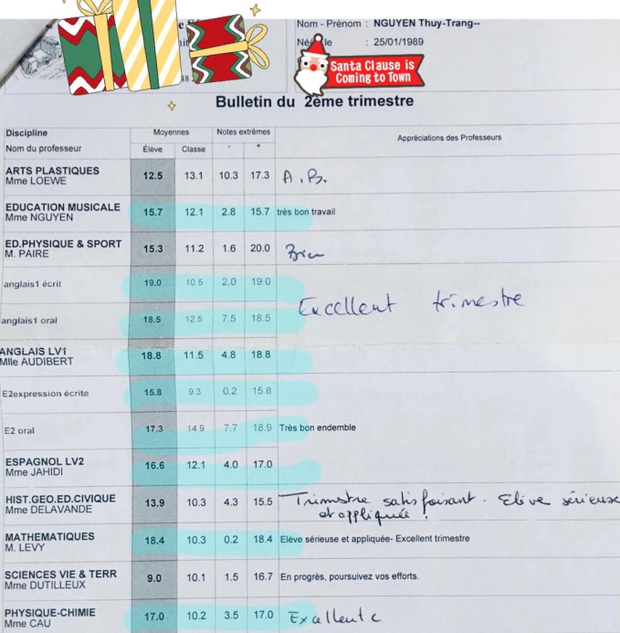 Nom - Prénom : NGUYEN Thuy-Trang--
25/01/1989
Santa Clause is
Coming to Town
Bulletin du 2ème trimestre
Discipline Moyennes Notes extrêmes Appréciations des Professeurs
Nom du professeur Élève Classe - +
ARTS PLASTIQUES 12.5 13.1 10.3 17.3 A.B.
Mme LOEWE
EDUCATION MUSICALE 15.7 12.1 2.8 15.7 très bon travail
Mme NGUYEN
ED.PHYSIQUE & SPORT 15.3 11.2 1.6 20.0 Bien
M. PAIRE
anglais1 écrit 19.0 10.5 2.0 19.0
Excellent trimestre
anglais1 oral 18.5 12.5 7.5 18.5
ANGLAIS LV1 18.8 11.5 4.8 18.8
Mlle AUDIBERT
E2expression écrite 15.8 9.3 0.2 15.8
E2 oral 17.3 14.9 7.7 18.9 Très bon endemble
ESPAGNOL LV2 16.6 12.1 4.0 17.0
Mme JAHIDI
HIST.GEO.ED.CIVIQUE 13.9 10.3 4.3 15.5 Trimestre satisfaisant. Elève sérieuse
Mme DELAVANDE et appliquée !
MATHEMATIQUES 18.4 10.3 0.2 18.4 Elève sérieuse et appliquée- Excellent trimestre
M. LEVY
SCIENCES VIE & TERR 9.0 10.1 1.5 16.7 En progrès, poursuivez vos efforts.
Mme DUTILLEUX
PHYSIQUE-CHIMIE 17.0 10.2 3.5 17.0 Excellent
Mme CAU